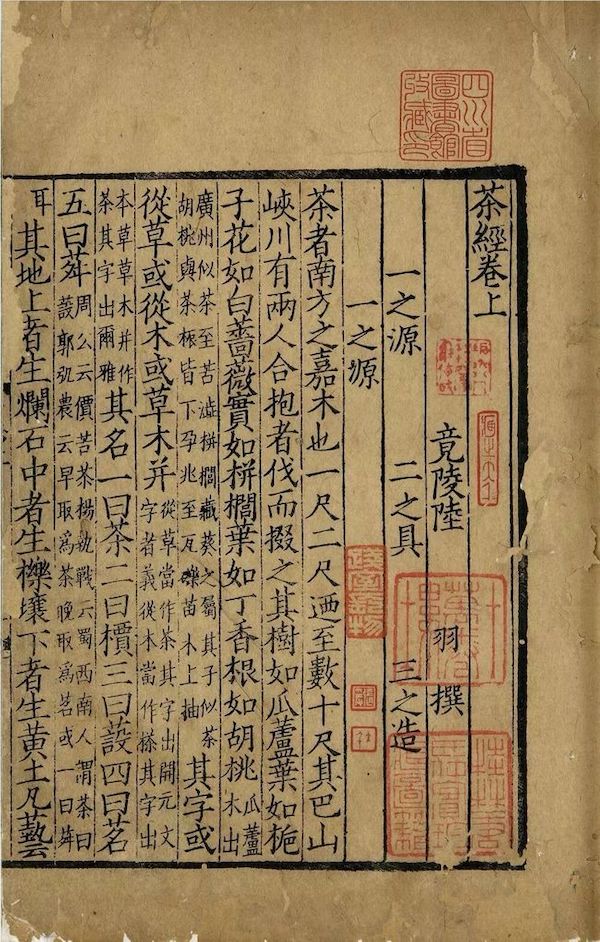 四川省
圖書館
收藏印
茶經卷上
竟陵陸 羽 撰
一之源 二之具 三之造
一之源
茶者南方之嘉木也一尺二尺迺至數十尺其巴山
峽川有兩人合抱者伐而掇之其樹如瓜蘆葉如梔
子花如白薔薇實如栟櫚葉如丁香根如胡桃
瓜蘆
木出
廣州似茶至苦澁栟櫚藏葵之屬其子似茶
胡桃與茶根皆下孕兆至瓦礫苗木上抽
其字或
從草或從木或草木并
從草當作茶其字出開元文
字者義從木當作搽其字出
本草草木并作
茶其字出爾雅
其名一曰茶二曰檟三曰設四曰茗
五曰荈
周公云價苦茶楊執戟云蜀西南人謂茶曰
設郭弘農云早取為茶晚取為茗或一曰荈
耳
其地上者生爛石中者生櫟壤下者生黃土凡藝